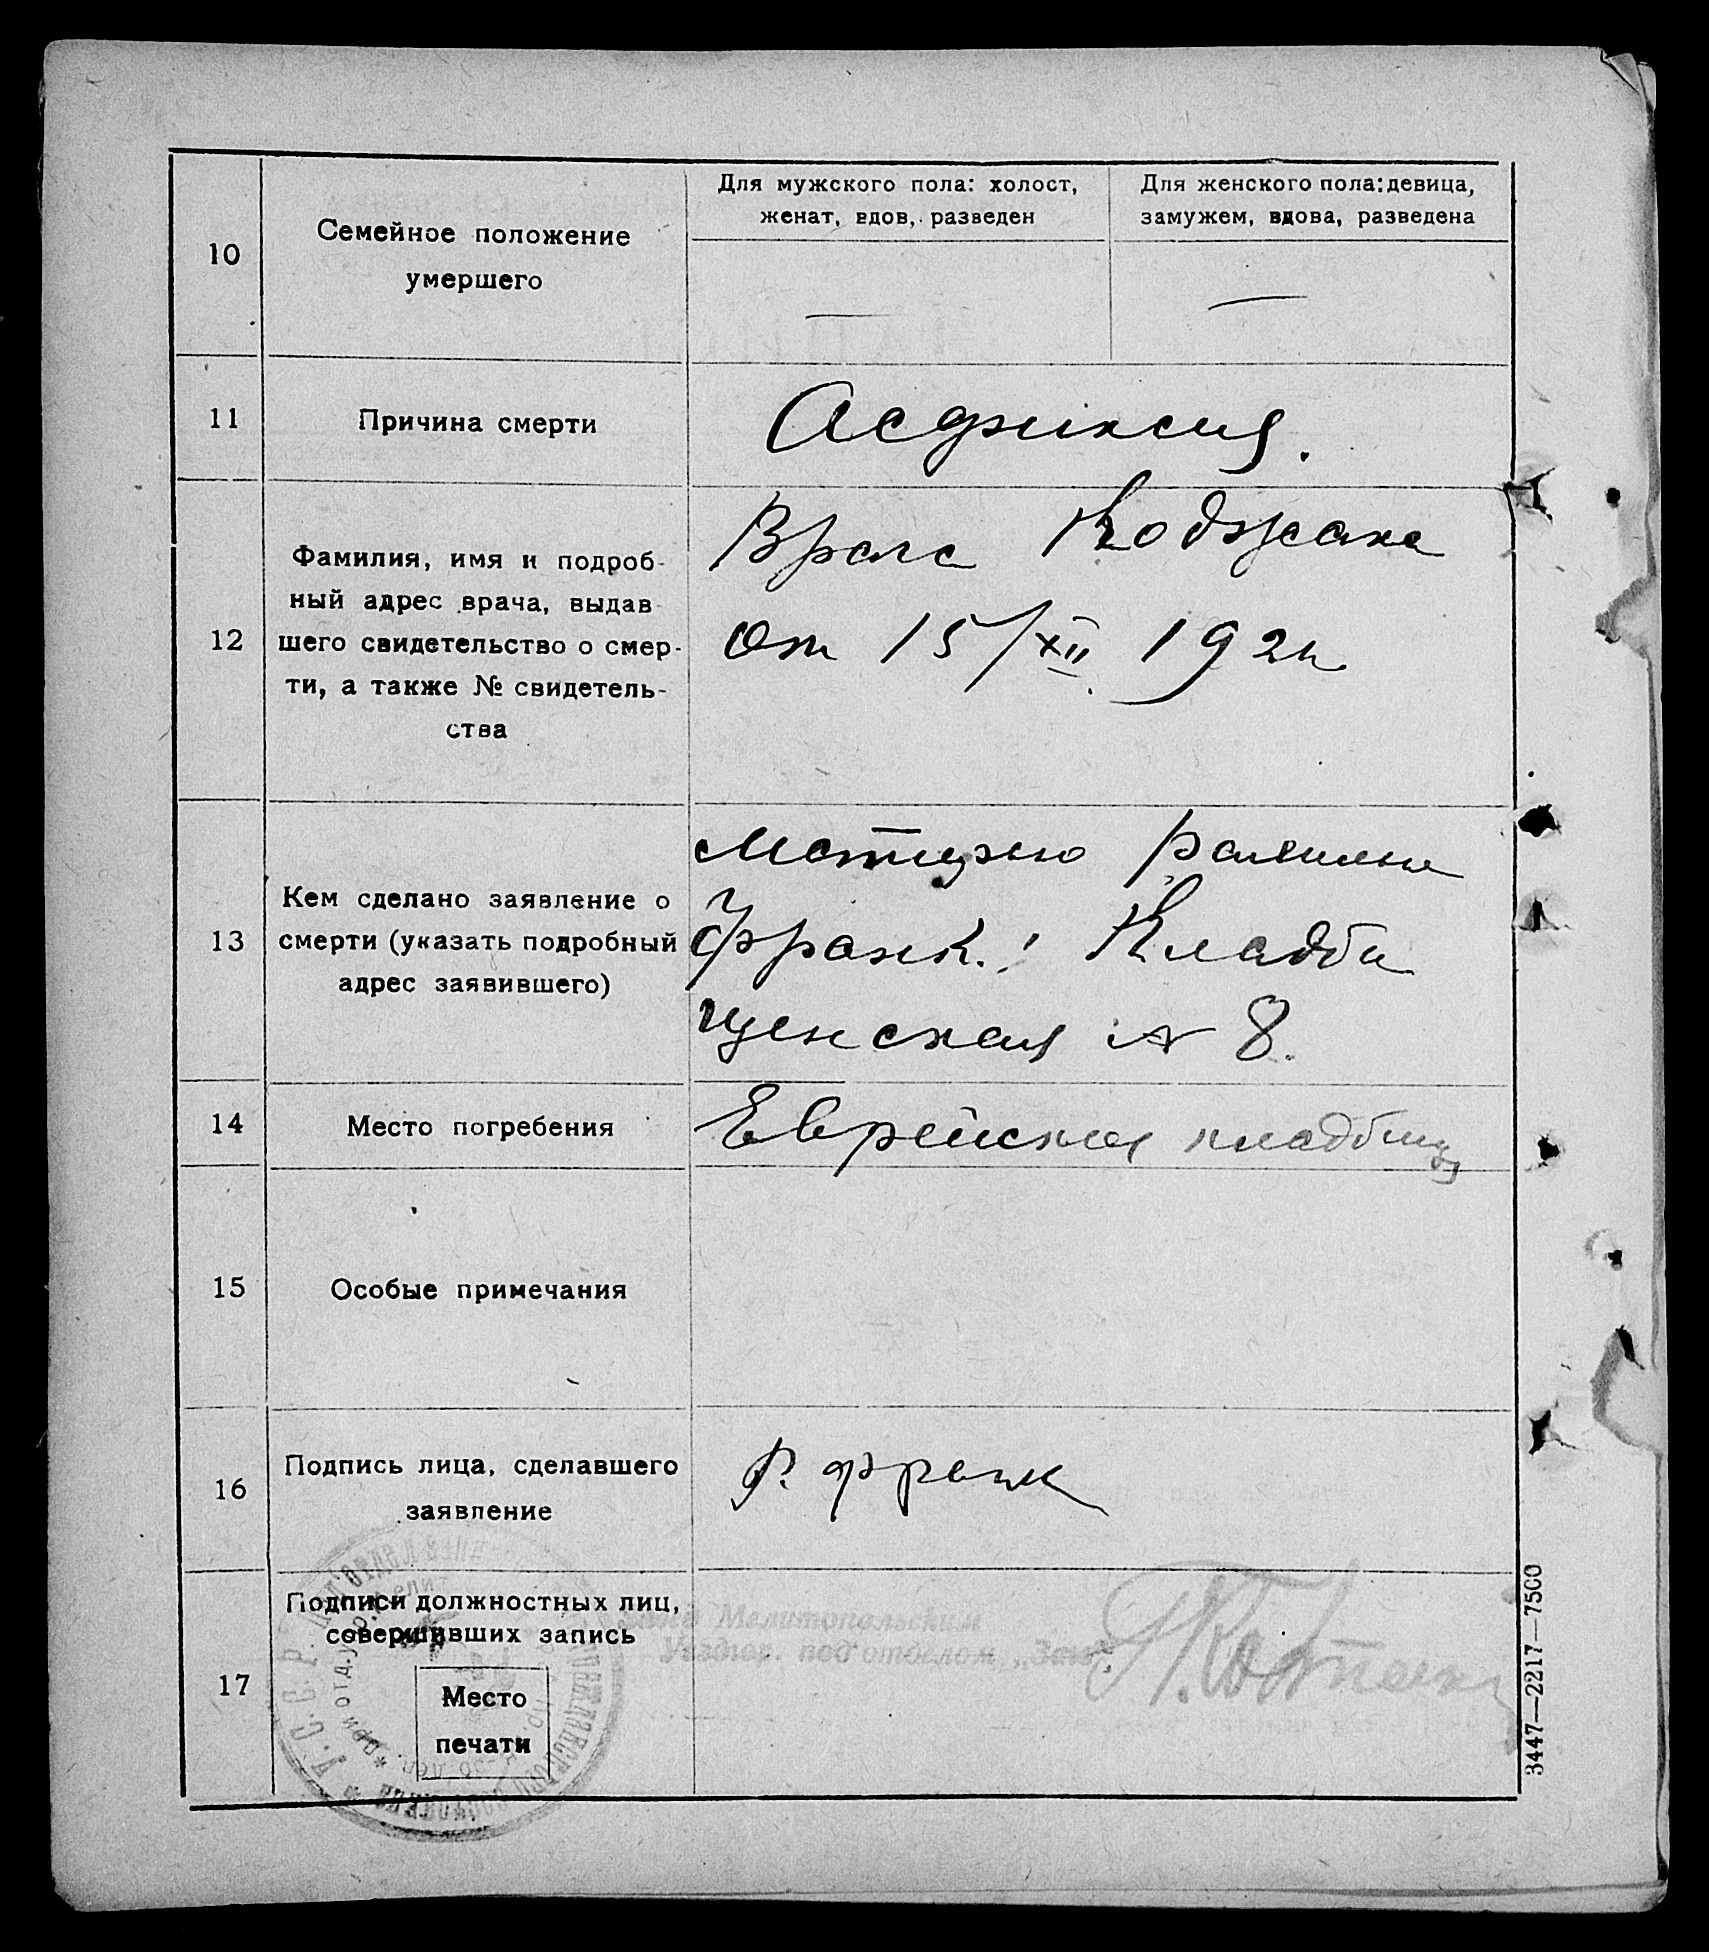 10
Семейное положение
умершего
Для мужского пола: холост,
женат, вдов, разведен
Для женского пола: девица,
замужем, вдова, разведена
11
Причина смерти
Асфиксия.
12
Фамилия, имя и подроб-
ный адрес врача, выдав-
шего свидетельство о смер-
ти, а также № свидетель-
ства
Врача Коджака
от 15/XII 192
13
Кем сделано заявление о
смерти (указать подробный
адрес заявившего)
Матерью
Франк. Кладби
щенская № 8.
14
Место погребения
Еврейское кладбище
15
Особые примечания
16
Подпись лица, сделавшего
заявление
Р. Франк
17
Подписи должностных лиц,
совершивших запись
Место
печати
Мелитопольским
под'отделом „Загс"
У.С.С.Р.
3447—2217—7500